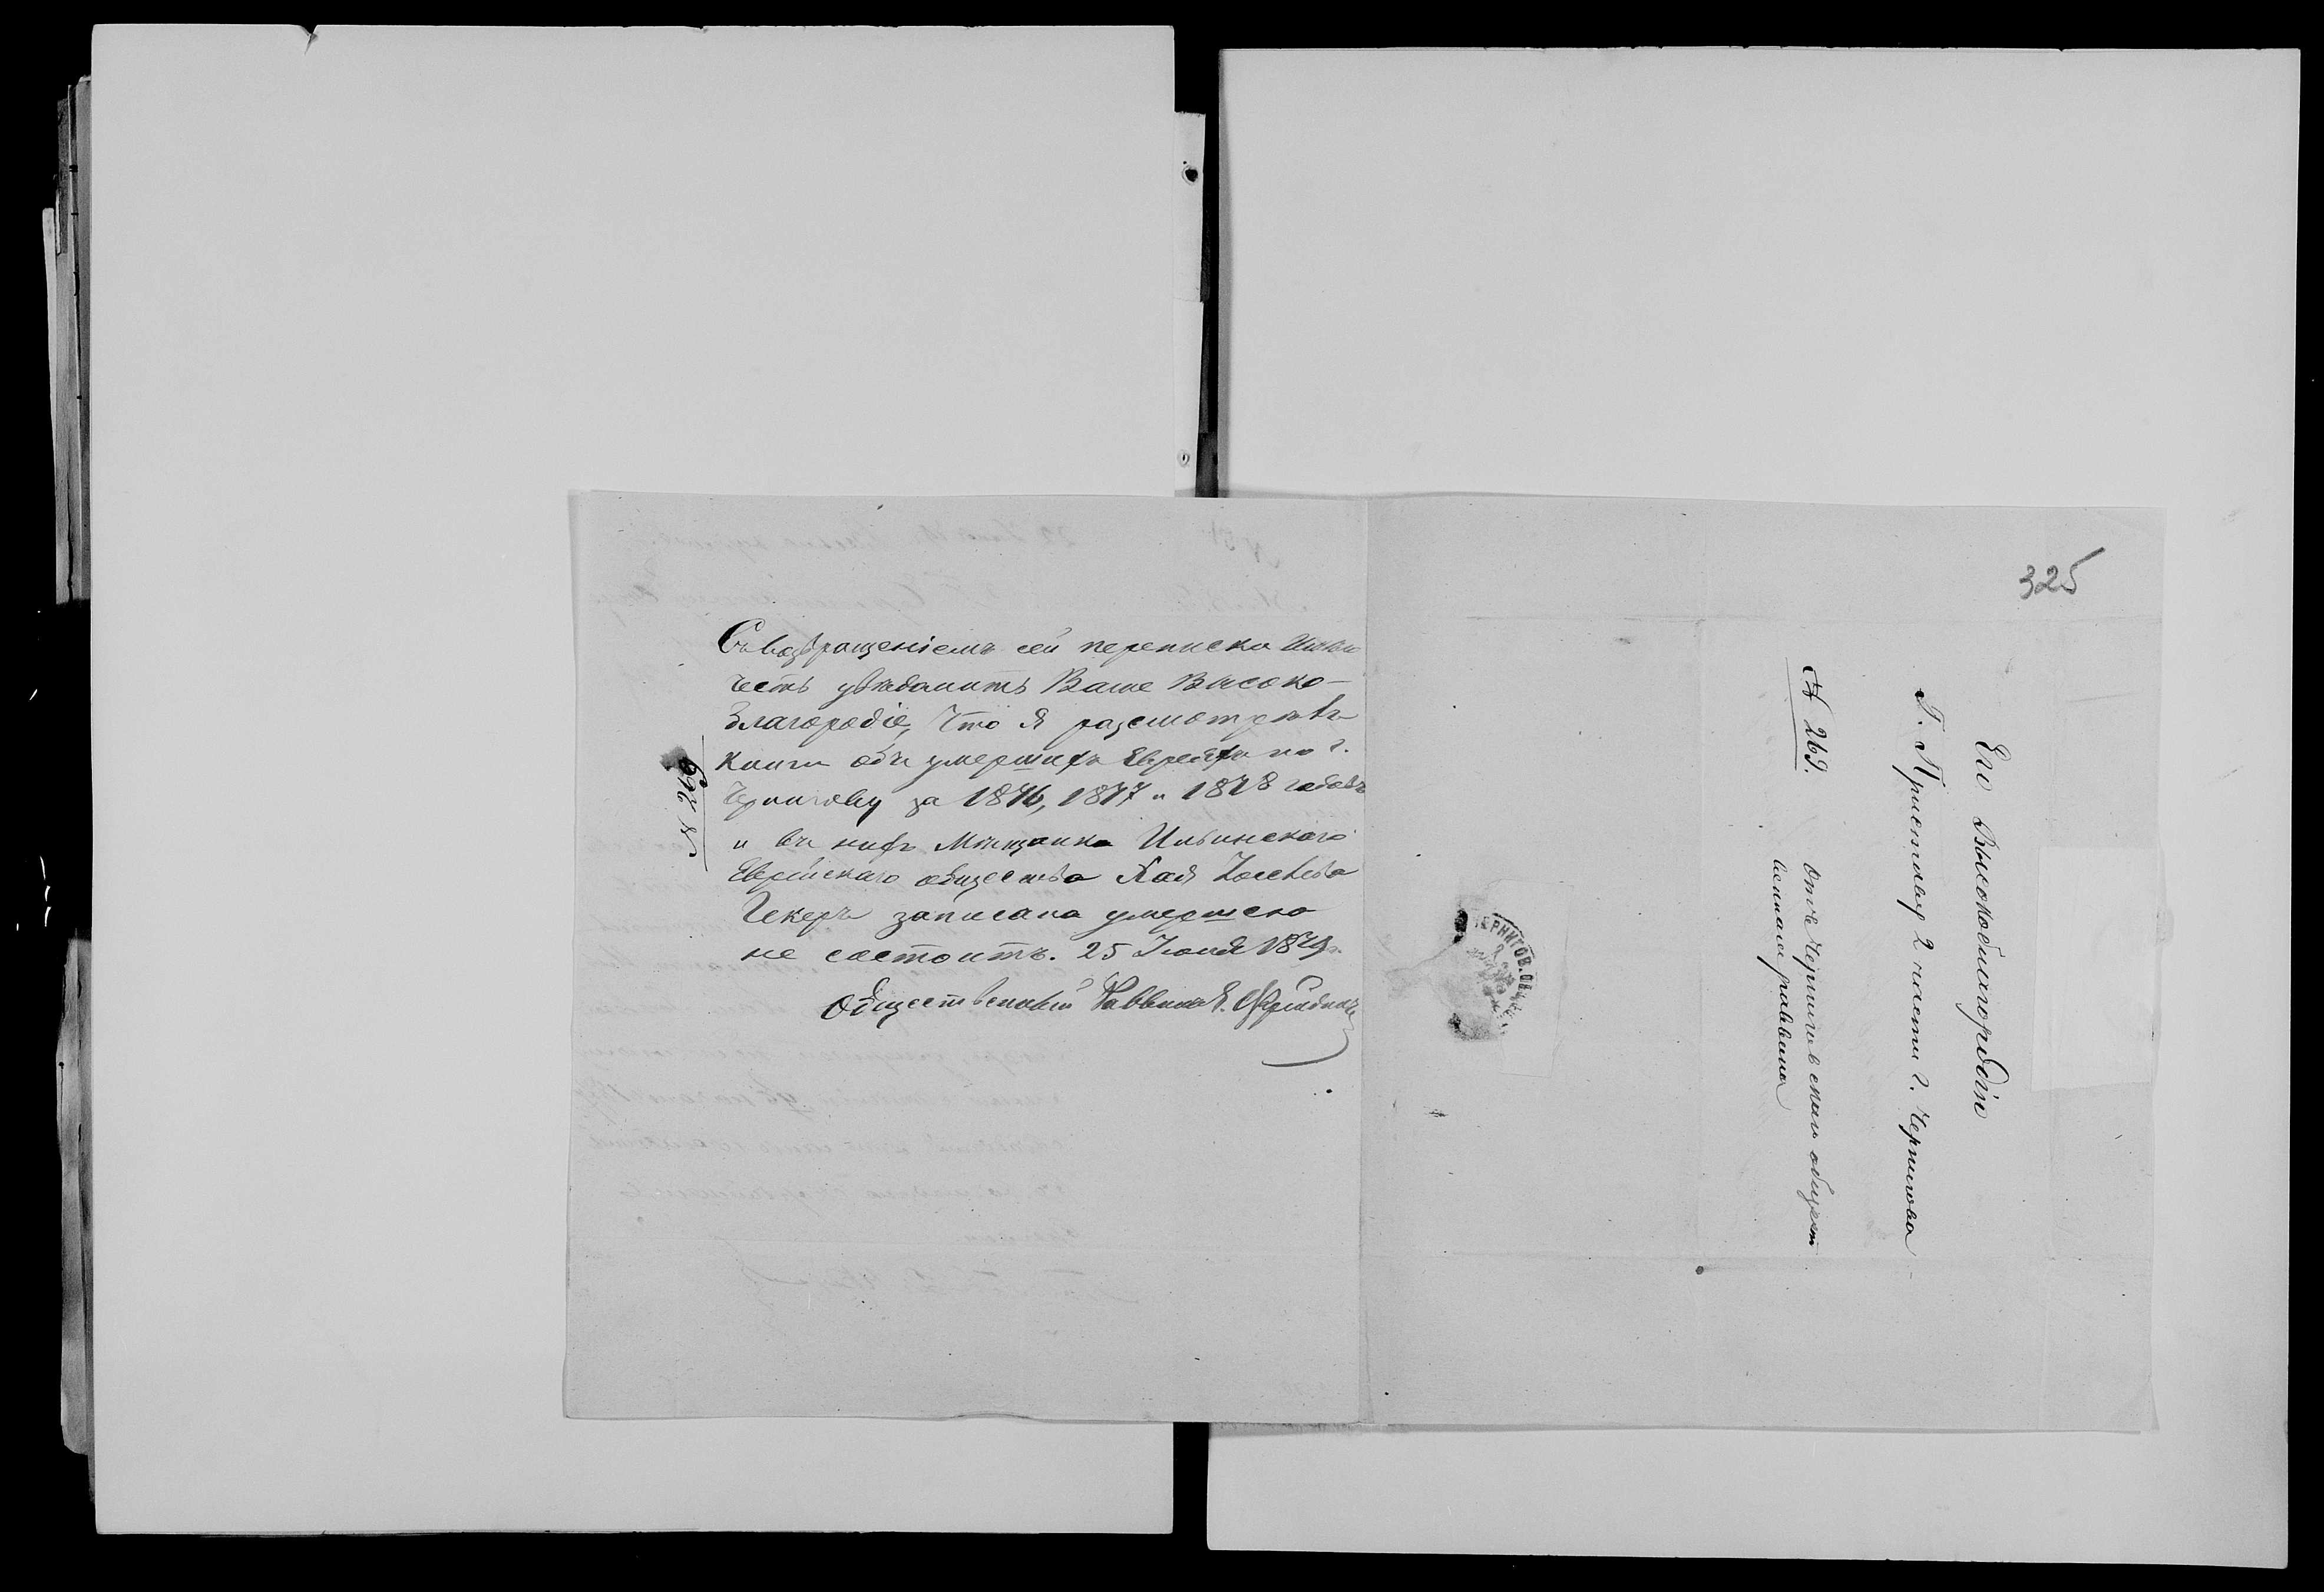 Съ возвращеніемъ сей переписки имѣю
честь увѣдомить Ваше Высоко-
благородіе, что я разсмотрелъ
книги объ умершихъ Евреяхъ по г.
Чернигову за 1876, 1877 и 1878 годовъ
и въ нихъ Мѣщанка Ильинскаго
Еврейскаго общества Хая
записана умершею
не состоитъ. 25 Іюня 1879.
Общественный Раввинъ Фридманъ
№ 269
325
Его Высокоблагородію
Г. Приставу 2 части г. Чернигова
№ 269.
Отъ Черниговскаго общест
веннаго раввина
ЧЕРНИГОВ. ОБЩ